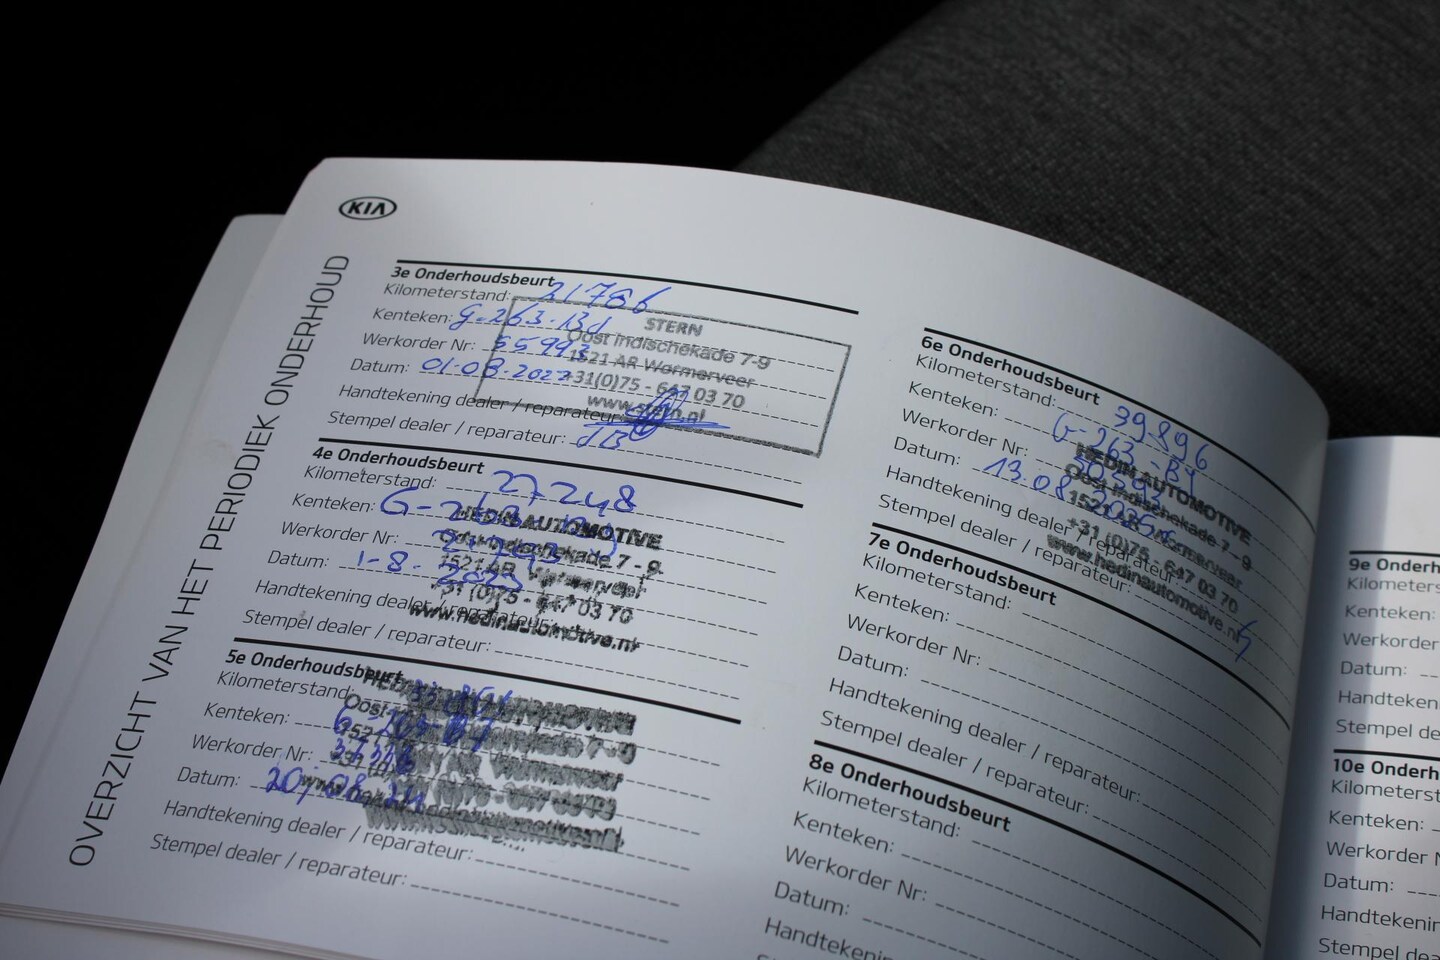 KIA
OVERZICHT VAN HET PERIODIEK ONDERHOUD
3e Onderhoudsbeurt
Kilometerstand: 21786
Kenteken: G-263-BJ
Werkorder Nr: 55993
Datum: 01-08-2022
Handtekening dealer / reparateur:
Stempel dealer / reparateur: dB
STERN
Oost Indischekade 7-9
1521 AR Wormerveer
+31(0)75 - 647 03 70
www.stern.nl
4e Onderhoudsbeurt
Kilometerstand: 27248
Kenteken: G-263
Werkorder Nr:
Datum: 1-8-2023
Handtekening dealer / reparateur:
Stempel dealer / reparateur:
HEDIN AUTOMOTIVE
Oost-Indischekade 7 - 9
1521 AR Wormerveer
+31 (0)75 - 647 03 70
www.hedinautomotive.nl
5e Onderhoudsbeurt
Kilometerstand:
Kenteken:
Werkorder Nr:
Datum: 20/08/24
Handtekening dealer / reparateur:
Stempel dealer / reparateur:
6e Onderhoudsbeurt
Kilometerstand: 39.896
Kenteken: G-263-BJ
Werkorder Nr:
Datum: 13.08.2025
Handtekening dealer / reparateur:
Stempel dealer / reparateur:
HEDIN AUTOMOTIVE
Oost-Indischekade 7 - 9
1521 AR Wormerveer
+31 (0)75 - 647 03 70
www.hedinautomotive.nl
7e Onderhoudsbeurt
Kilometerstand:
Kenteken:
Werkorder Nr:
Datum:
Handtekening dealer / reparateur:
Stempel dealer / reparateur:
8e Onderhoudsbeurt
Kilometerstand:
Kenteken:
Werkorder Nr:
Datum:
Handtekening
9e Onderh
Kilometers
Kenteken:
Werkorder
Datum:
Handtekenin
Stempel de
10e Onderh
Kilometerst
Kenteken:
Werkorder N
Datum:
Handtekenin
Stempel dea